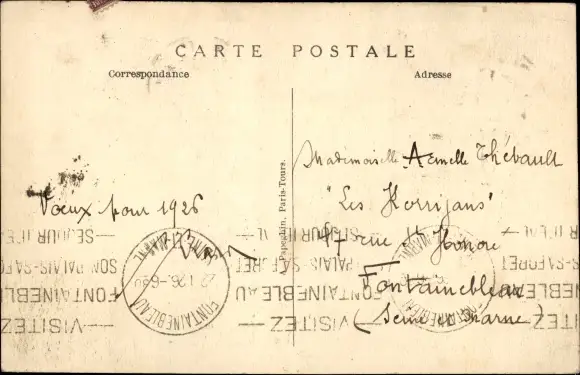 CARTE POSTALE
Correspondance
Adresse
Vœux pour 1926
Mademoiselle Armelle Thébault
"Les Korrigans"
rue St Honoré
Fontainebleau
(Seine & Marne)
Papeghin, Paris-Tours.
VISITEZ
FONTAINEBLEAU
SON PALAIS-SA FORET
SEJOUR D'ETE
FONTAINEBLEAU
SEINE-ET-MARNE